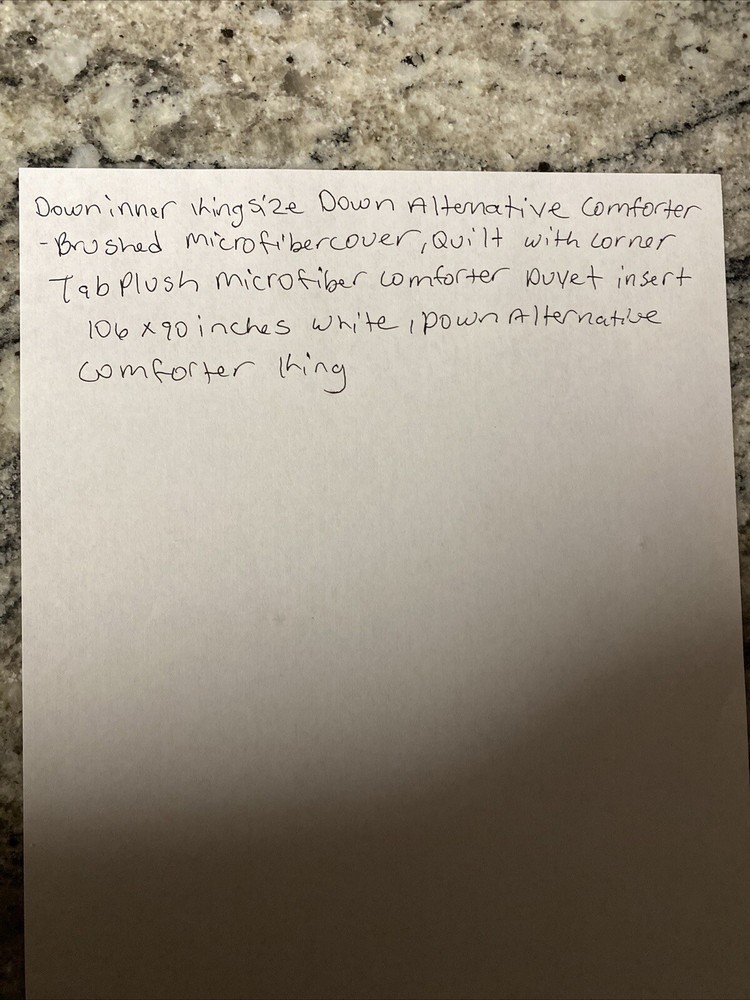 Downinner king size Down Alternative Comforter
- Brushed microfibercover, Quilt with corner
Tab Plush microfiber comforter Duvet insert
106 x 90 inches white, Down Alternative
comforter king